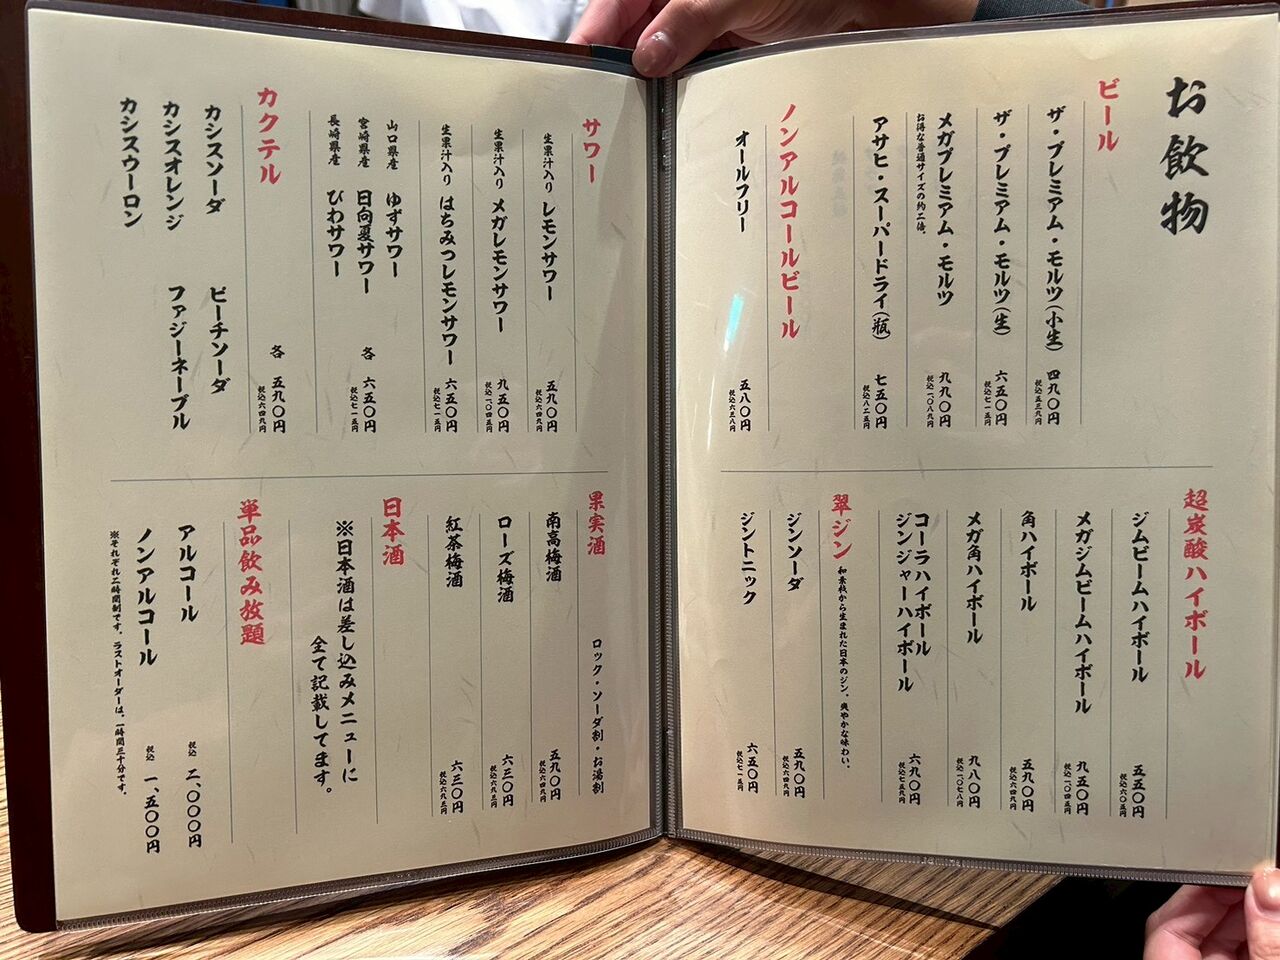 お飲物
ビール
ザ・プレミアム・モルツ(小生) 四九〇円
税込五三九円
ザ・プレミアム・モルツ(生) 六五〇円
税込七一五円
メガプレミアム・モルツ 九九〇円
お得な普通サイズの約二倍。 税込一、〇八九円
アサヒ・スーパードライ(瓶) 七五〇円
税込八二五円
ノンアルコールビール
オールフリー 五八〇円
税込六三八円
超炭酸ハイボール
ジムビームハイボール 五五〇円
税込六〇五円
メガジムビームハイボール 九五〇円
税込一、〇四五円
角ハイボール 五九〇円
税込六四九円
メガ角ハイボール 九八〇円
税込一、〇七八円
コーラハイボール
ジンジャーハイボール 六九〇円
税込七五九円
翠ジン 和素材から生まれた日本のジン、爽やかな味わい。
ジンソーダ 五九〇円
税込六四九円
ジントニック 六五〇円
税込七一五円
サワー
生果汁入り レモンサワー 五九〇円
税込六四九円
生果汁入り メガレモンサワー 九五〇円
税込一、〇四五円
生果汁入り はちみつレモンサワー 六五〇円
税込七一五円
山口県産 ゆずサワー
宮崎県産 日向夏サワー 各 六五〇円
税込七一五円
長崎県産 びわサワー
カクテル 各 五九〇円
税込六四九円
カシスソーダ ピーチソーダ
カシスオレンジ ファジーネーブル
カシスウーロン
果実酒 ロック・ソーダ割・お湯割
南高梅酒 五九〇円
税込六四九円
ローズ梅酒 六三〇円
税込六九三円
紅茶梅酒 六三〇円
税込六九三円
日本酒
※日本酒は差し込みメニューに
全て記載してます。
単品飲み放題
アルコール 税込 二、〇〇〇円
ノンアルコール 税込 一、五〇〇円
※それぞれ二時間制です。ラストオーダーは、一時間三十分です。